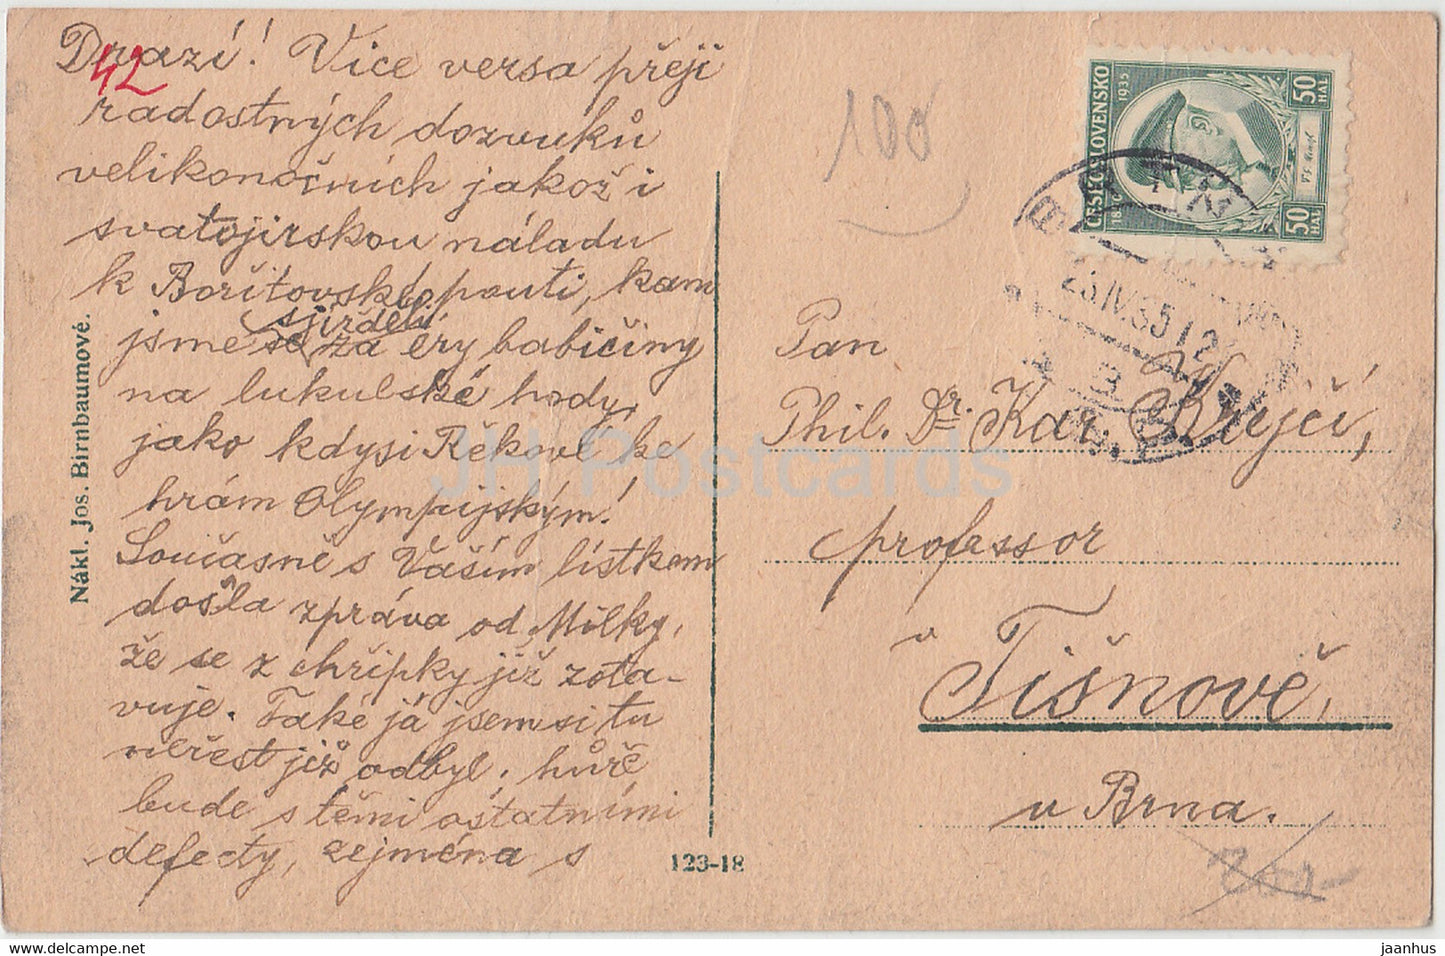 Drazí! Vice versa přeji
42
radostných dozvuků
velikonočních jakož i
svatojirskou náladu
k Bořitovské pouti, kam
sjížděli
jsme se za éry babičiny
na lukulské hody,
jako kdysi Řěkové ke
hrám Olympijským!
Současně s Vaším lístkem
došla zpráva od Milky,
že se z chřipky již zota-
vuje. Také já jsem si tu
neřest již odbyl. hůře
bude s těmi ostatními
defecty, zejména s
Nákl. Jos. Birnbaumové.
123-18
100
ČESKOSLOVENSKO
1935
50 HAL
50 HAL
23.IV.35 12
3
Pan
Phil. Dr. Kar. Krejčí,
professor
v
Tišnově,
u Brna.
JH Postcards
www.hipmarket.com
jaanhus